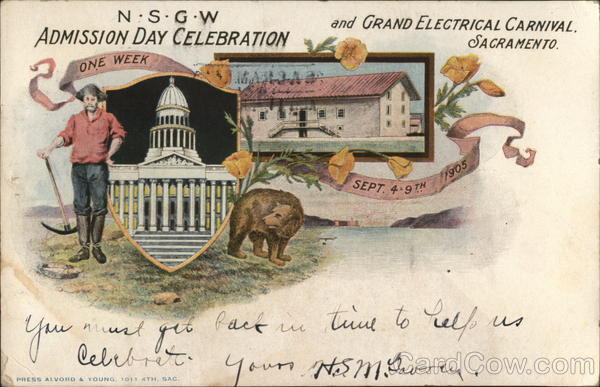 N·S·G·W
ADMISSION DAY CELEBRATION
and GRAND ELECTRICAL CARNIVAL.
SACRAMENTO.
ONE WEEK
SEPT. 4-9TH 1905
You must get back in time to help us
Celebrat. Yours H.S.M.
PRESS ALVORD & YOUNG, 1011 4TH, SAC.
CardCow.com